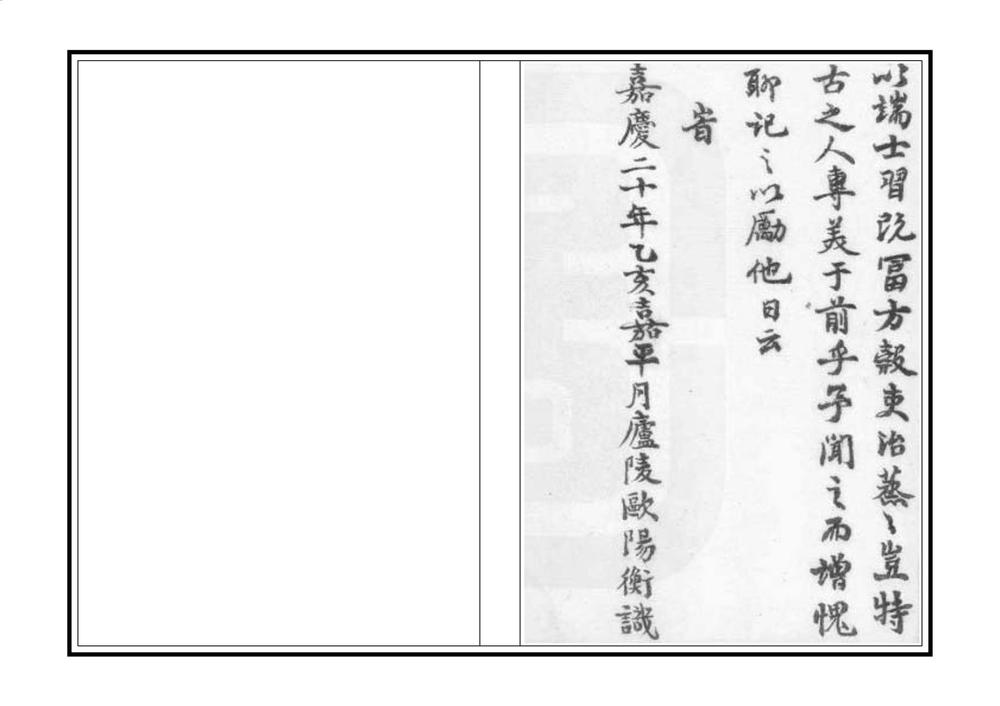 以端士習既冨方穀吏治蒸〻豈特
古之人專美于前乎予聞之而增愧
聊記之以勵他日云
峕
嘉慶二十年乙亥嘉平月廬陵歐陽衡識